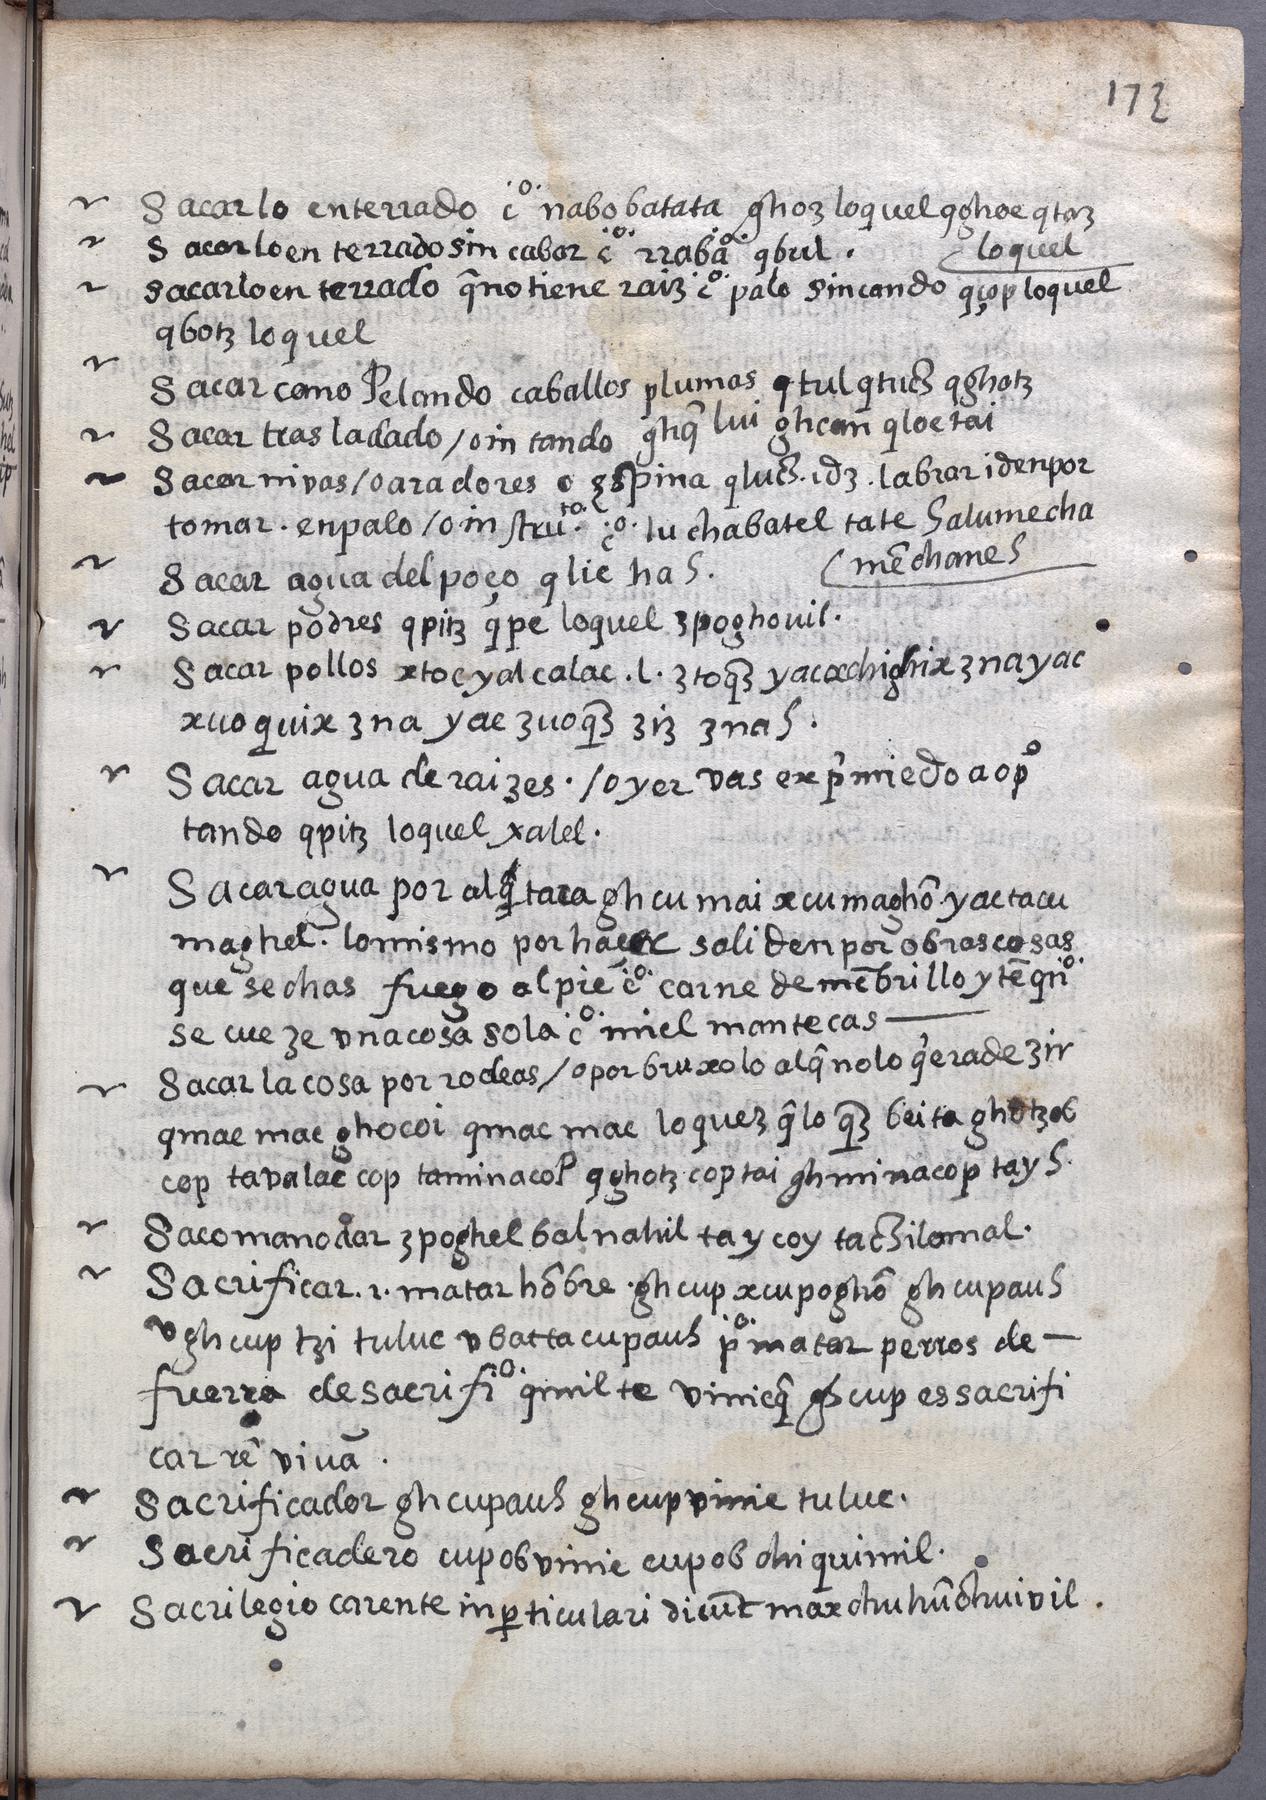 173
Sacar lo enterrado c̄o. nabo batata ghoz loquel qghoe qtoz
Sacar lo en terrado sin cabar c̄o. rrabāo. qbul. loquel
sacar lo en terrado q̄ no tiene raiz c̄o. palo sincando qçop loquel
qbotz loquel
Sacar como Pelando caballos plumas qtul qtuch qghotz
Sacar tras ladado / o in tando ghq̄ lui ghcan qloetai
Sacar nivas / o aradores o espina qluch. idz. labrar iden por
tomar. en palo / o in stru to. c̄o. lu chabatel tate Salumecha
(mēchanes
Sacar agua del poço qlic has.
Sacar podres qpitz q̄pe loquel zpoghovil.
Sacar pollos xtoc yalcalac .l. ztoq̄z yacxchighix znayac
xuo quix zna yac zuoq̄z ziz znas.
Sacar agua de raizes. / o yer vas exp̄miedo aop̄o
tando qpitz loquel xalel.
Sacar agua por alq̄tara ghcumai xcumaghō. yactacu
maghel. lo mismo por haçer saliden por obras cosas
que se chas fuego al pie c̄o. carne de mēbrillo y tēq̄no.
se cueze vna cosa sola c̄o. miel mantecas —
Sacar la cosa por rodeas / o por bruxolo alq̄ nolo q̄erade zir
qmac mac ghocoi qmac mac loquez q̄lo q̄z beita ghotzob
cop tavalac cop taminacop qghotz coptai ghminacop tays.
Sacomano dar zpoghel balnahil tay coy tachilomal.
Sacrificar. r. matar hōbre. ghcup xcupoghō ghcupaus
vghcup tzi tuluc vbatta cupaus p̄o. matar perros de —
fuerra de sacrifi o. qmilte vinicq̄ ghcup es sacrifi
car rē vivā.
Sacrificador ghcupaus ghcup vinic tuluc.
Sacrificadero cupob vinic cupob chi quimil.
Sacrilegio carente in p̱ticulari dicūt max chuhūchuivil.